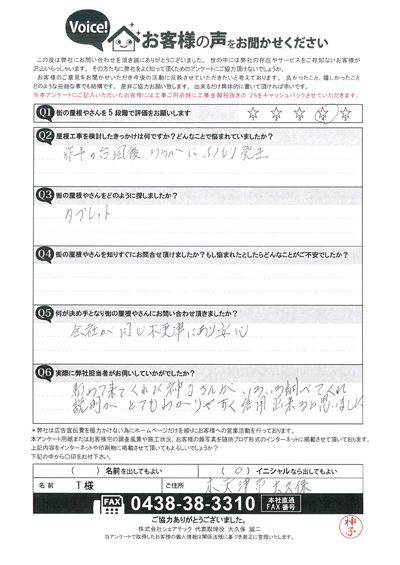 Voice!
お客様の声をお聞かせください
この度は弊社にお問い合わせを頂き誠にありがとうございました。 世の中には弊社の存在やサービスをご存知ないお客様が
沢山いらっしゃいます。 その方たちに弊社をよく知って頂くためのアンケートにご協力頂けないでしょうか。
お客様のご意見をお聞かせいただき今後の活動に反映させていただきたいと考えております。 良かったこと、嬉しかったこと
どのような些細な事でも結構です。 是非ご協力お願い致します。 出来るだけ具体的に書いて頂ければ幸いです。
※本アンケートにご記入いただいたお客様には工事ご用命時に工事金額税抜きの 2%をキャッシュバックさせていただきます。
Q1 街の屋根やさんを 5 段階で評価をお願いします
☆ ☆ ☆ ☆ ☆
Q2 屋根工事を検討したきっかけは何ですか?どんなことで悩まれていましたか?
昨年の台風後
発生
Q3 街の屋根やさんをどのように探しましたか?
タブレット
Q4 街の屋根やさんを知りすぐにお問合せ頂けましたか?もし悩まれたとしたらどんなことがご不安でしたか?
Q5 何が決め手となり街の屋根やさんにお問い合わせ頂きましたか?
会社が同じ木更津にあり安心
Q6 実際に弊社担当者がお伺いしていかがでしたか?
初めて来てくれた神子さんがいろいろ調べてくれ
説明がとてもわかりやすく信用出来ると思いました
※弊社は広告宣伝費を極力かけない為にホームページだけを頼りにお客様への営業活動を行っております。
本アンケート用紙またはお客様宅の調査風景や施工状況、お客様の顔写真を随時ブログ形式のインターネットに掲載させて頂いております。
上記内容をインターネットや印刷物に掲載させて頂いてもよろしいでしょうか?
下記の中から〇印をお付下さい。
( ) 名前を出してもよい
( 〇 ) イニシャルなら出してもよい
名 前
T 様
ご住所
木更津市大久保
FAX 0438-38-3310 本社直通 FAX 番号
ご協力ありがとうございました。
株式会社シェアテック 代表取締役 大久保 誠二
当アンケートで取得したお客様の個人情報は関係法規に基づき適正に管理いたします。
神子